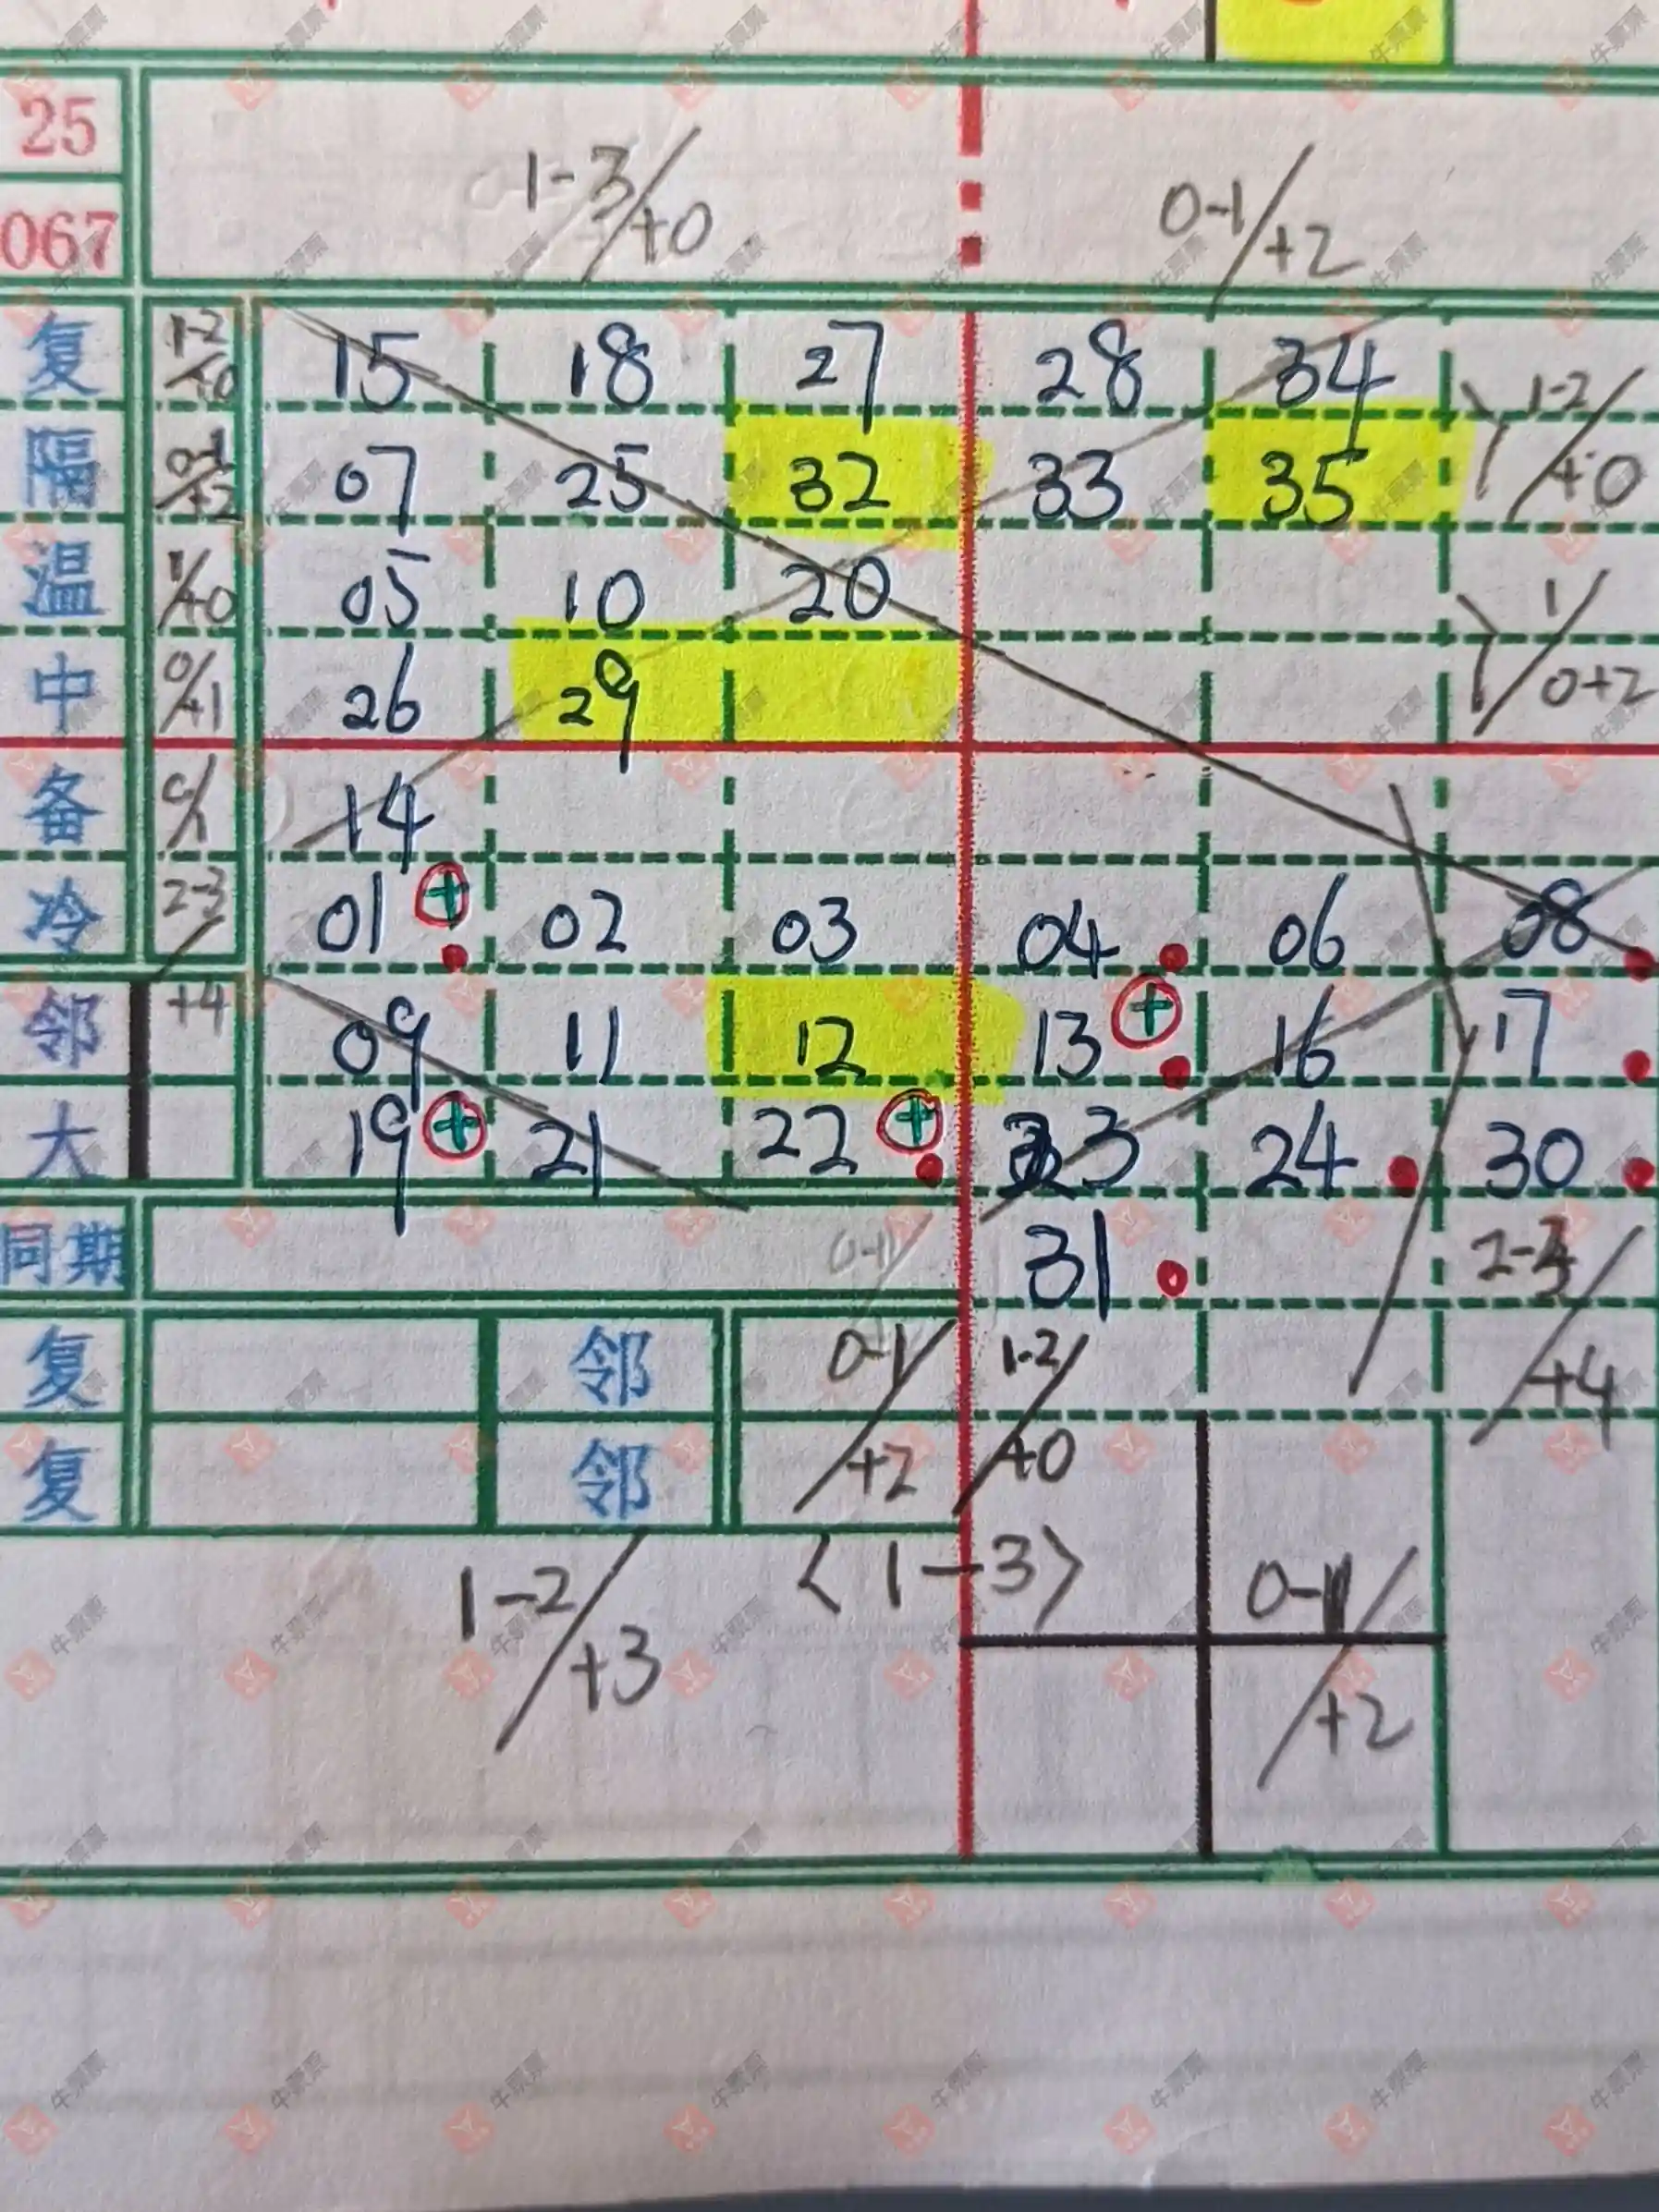 25
067
1-3/+0 0-1/+2
复 1-2/+0 15 18 27 28 34
隔 0-1/+2 07 25 32 33 35 1-2/+0
温 1/+0 05 10 20
中 0/+1 26 29 1/0+2
备 0/1 14
冷 2-3/ 01 + 02 03 04 06 08
邻 +4 09 11 12 13 + 16 17
大 19 + 21 22 + 23 24 30
同期 0-1/ 31
复 邻 0-1/+2 1-2/+0 +4
复 邻
1-2/+3 <1-3> 0-1/+2
牛票票